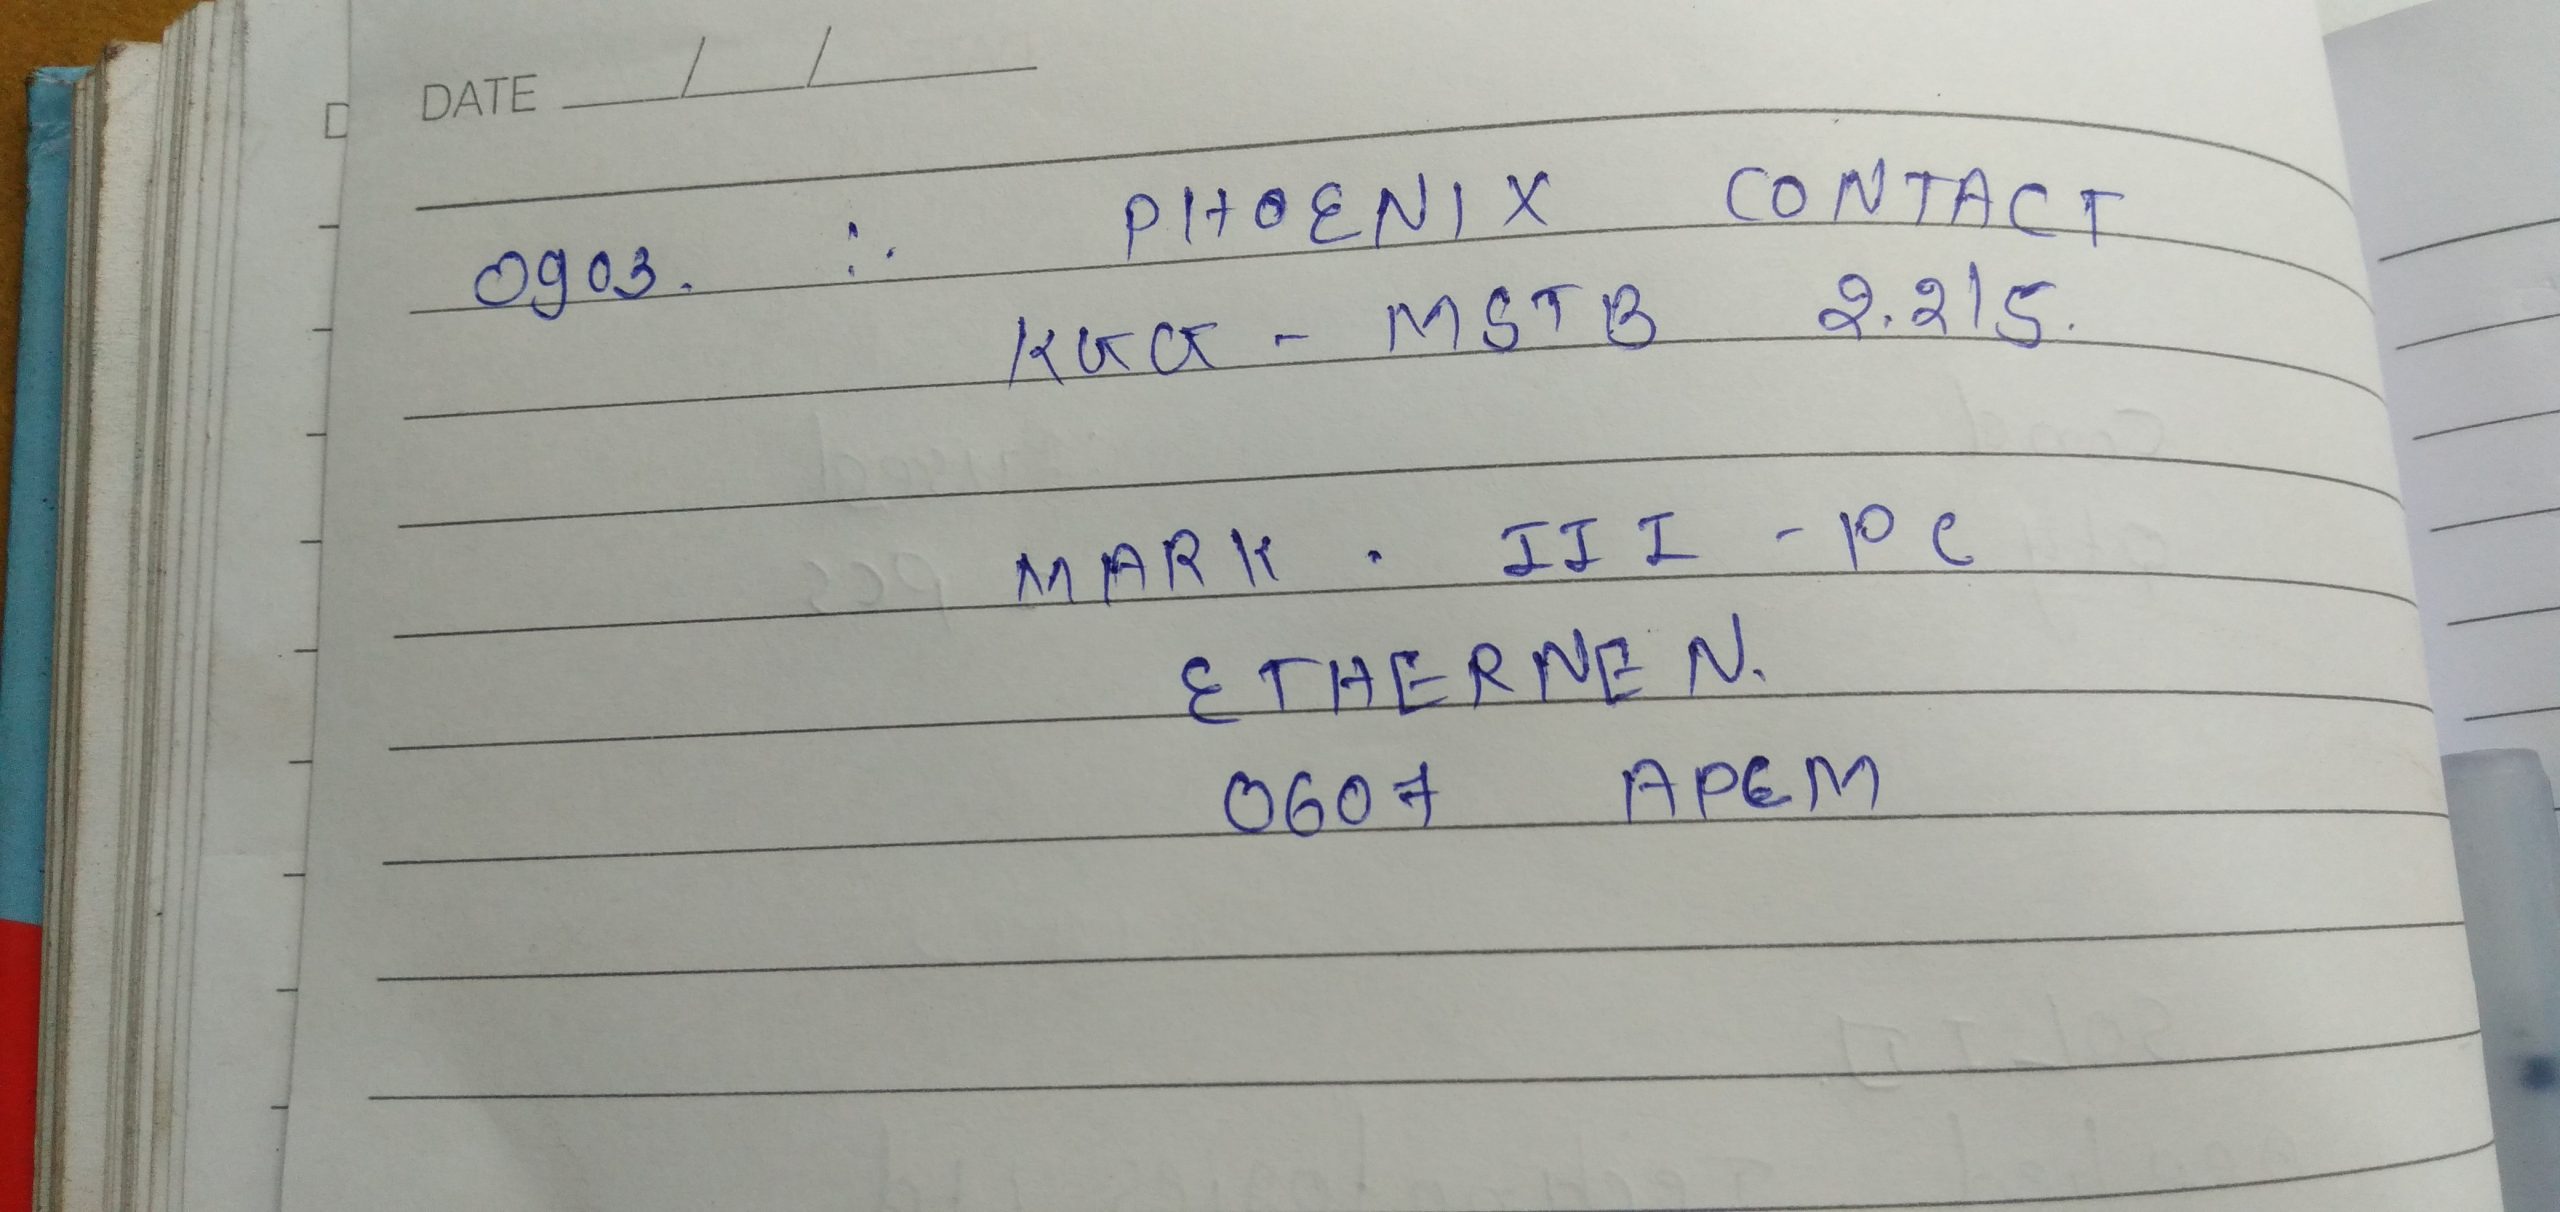 DATE / /
0903. :. PHOENIX CONTACT
KGG - MSTB 2.215.
MARK . III - PC
ETHERNEN.
0607 APEM